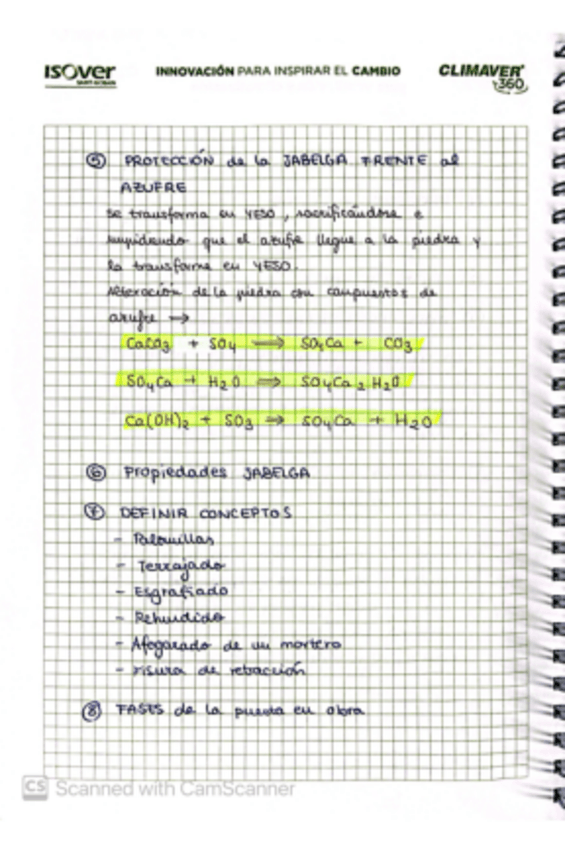 ISOVER
SAINT-GOBAIN
INNOVACIÓN PARA INSPIRAR EL CAMBIO
CLIMAVER 360
⑤ PROTECCIÓN de la JABELGA FRENTE al
AZUFRE
se transforma en YESO, sacrificándose e
impidiendo que el azufre llegue a la piedra y
la transforme en YESO.
Alteración de la piedra con compuestos de
azufre →
CaCO3 + SO4 ⟹ SO4Ca + CO3
SO4Ca + H2O ⟹ SO4Ca 2 H2O
Ca(OH)2 + SO3 ⇒ SO4Ca + H2O
⑥ Propiedades JABELGA
⑦ DEFINIR CONCEPTOS
- Palomillas
- Terrajado
- Esgrafiado
- Rehundido
- Afogarado de un mortero
- Fisura de retracción
⑧ FASES de la puesta en obra
CS Scanned with CamScanner